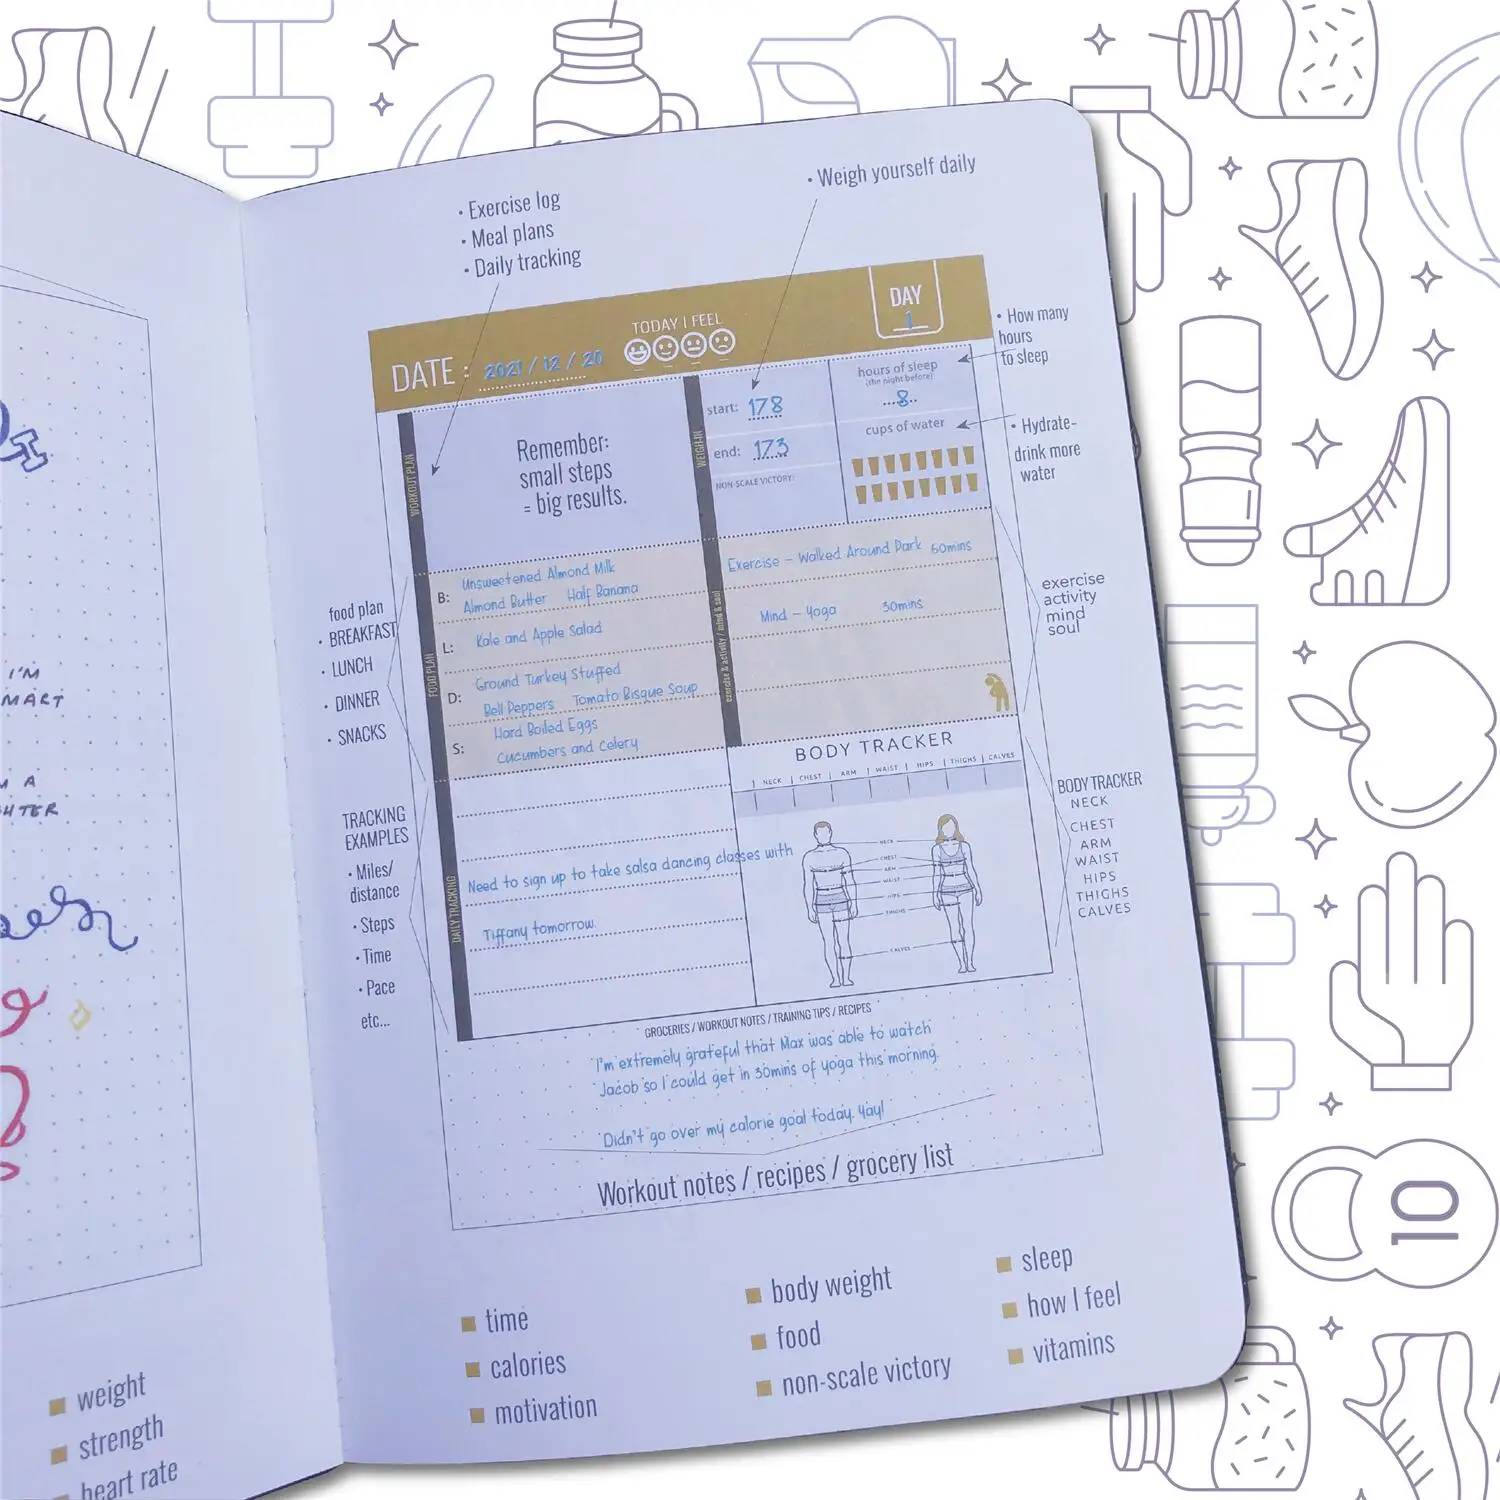 I'M
MART
M A
HTER
weight
strength
heart rate
• Exercise log
• Meal plans
• Daily tracking
• Weigh yourself daily
DATE : 2021 / 12 / 20
TODAY I FEEL
DAY
1
WORKOUT PLAN
Remember:
small steps
= big results.
WEIGH-IN
start: 178
end: 173
NON-SCALE VICTORY:
hours of sleep
(the night before)
8
cups of water
• How many
hours
to sleep
• Hydrate-
drink more
water
food plan
• BREAKFAST
• LUNCH
• DINNER
• SNACKS
FOOD PLAN
B: Unsweetened Almond Milk
Almond Butter Half Banana
L: Kale and Apple Salad
D: Ground Turkey Stuffed
Bell Peppers Tomato Bisque Soup
S: Hard Boiled Eggs
Cucumbers and Celery
exercise & activity / mind & soul
Exercise - Walked Around Park 60mins
Mind - Yoga 30mins
exercise
activity
mind
soul
TRACKING
EXAMPLES
• Miles/
distance
• Steps
• Time
• Pace
etc...
DAILY TRACKING
Need to sign up to take salsa dancing classes with
Tiffany tomorrow.
BODY TRACKER
NECK | CHEST | ARM | WAIST | HIPS | THIGHS | CALVES
NECK
CHEST
ARM
WAIST
HIPS
THIGHS
CALVES
BODY TRACKER
NECK
CHEST
ARM
WAIST
HIPS
THIGHS
CALVES
GROCERIES / WORKOUT NOTES / TRAINING TIPS / RECIPES
I'm extremely grateful that Max was able to watch
Jacob so I could get in 30mins of yoga this morning.
Didn't go over my calorie goal today. Yay!
Workout notes / recipes / grocery list
time
calories
motivation
body weight
food
non-scale victory
sleep
how I feel
vitamins
10